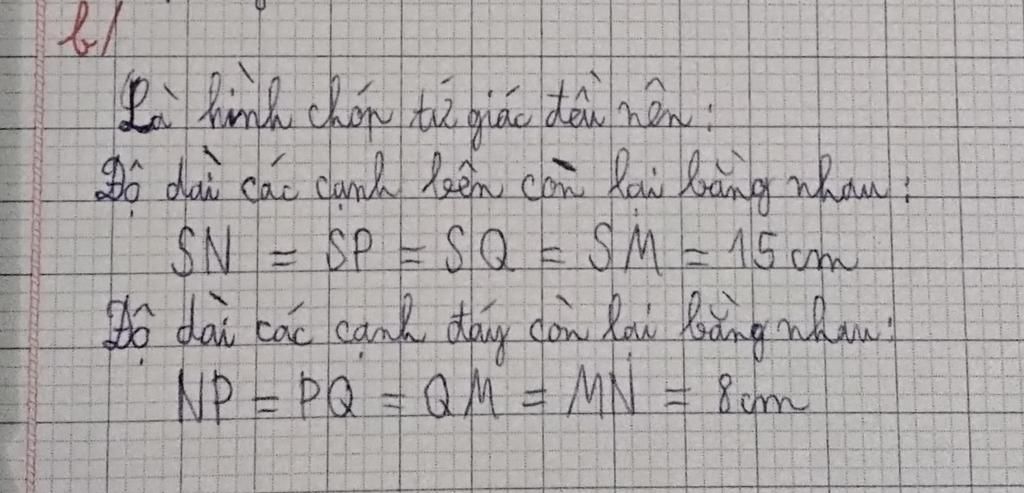 b/
Là hình chóp tứ giác đều nên:
Độ dài các cạnh bên còn lại bằng nhau:
SN = SP = SQ = SM = 15 cm
Độ dài các cạnh đáy còn lại bằng nhau:
NP = PQ = QM = MN = 8cm